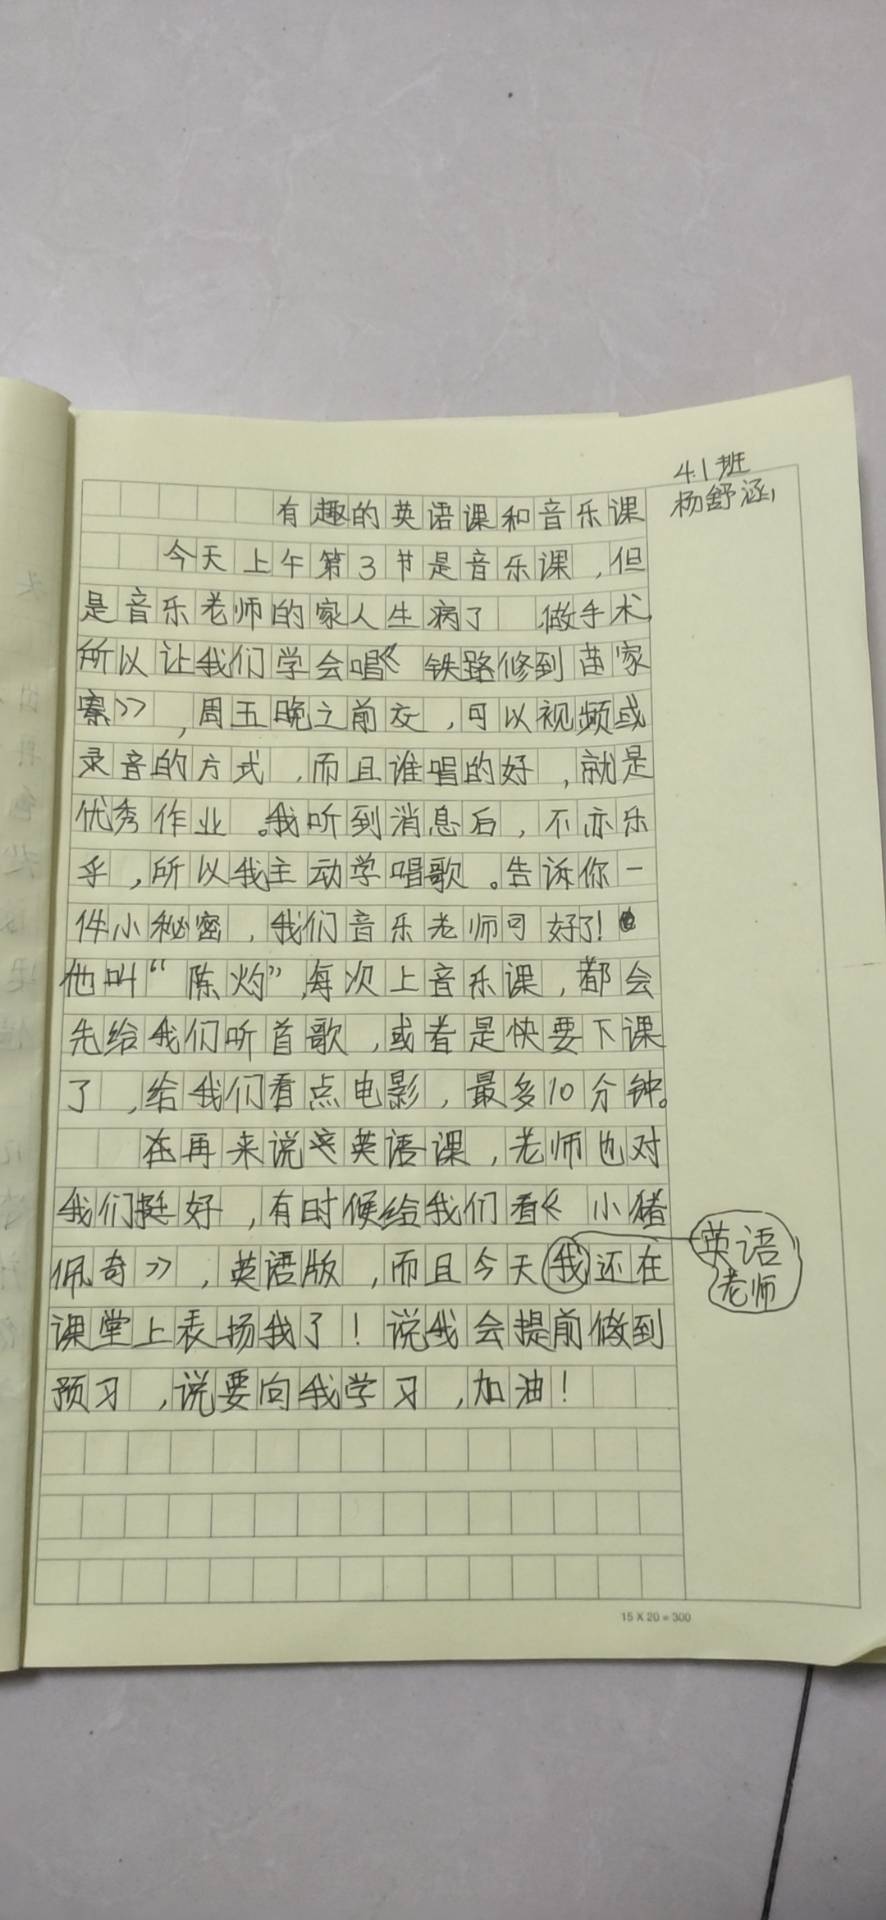 4.1班
杨舒涵
有趣的英语课和音乐课
今天上午第3节是音乐课，但
是音乐老师的家人生病了 做手术，
所以让我们学会唱《铁路修到苗家
寨》，周五晚之前交，可以视频或
录音的方式，而且谁唱的好，就是
优秀作业。我听到消息后，不亦乐
乎，所以我主动学唱歌。告诉你一
件小秘密，我们音乐老师可好了！
他叫“陈灼”，每次上音乐课，都会
先给我们听首歌，或者是快要下课
了，给我们看点电影，最多10分钟。
在再来说这英语课，老师也对
我们挺好，有时候给我们看《小猪
佩奇》，英语版，而且今天我还在
英语
老师
课堂上表扬我了！说我会提前做到
预习，说要向我学习，加油！
15 X 20 = 300